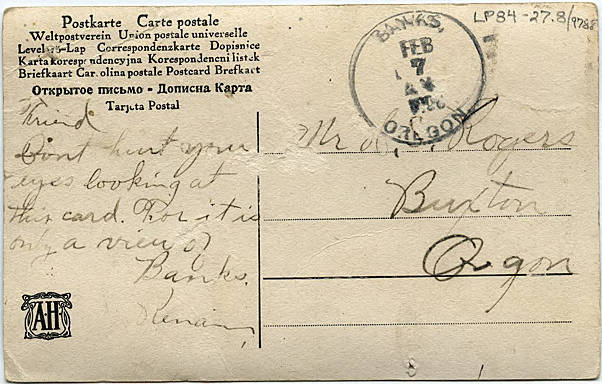 Postkarte Carte postale
Weltpostverein Union postale universelle
Levelező-Lap Correspondenzkarte Dopisnice
Karta korespondencyjna Korespondencni listek
Briefkaart Cartolina postale Postcard Brefkort
Открытое письмо - Дописна Карта
Tarjeta Postal
LP84-27.8/9788
BANKS,
FEB
7
OREGON
Friend
Dont hurt your
eyes looking at
this card. For it is
only a view of
Banks.
AH
Mr Rogers
Buxton
Oregon